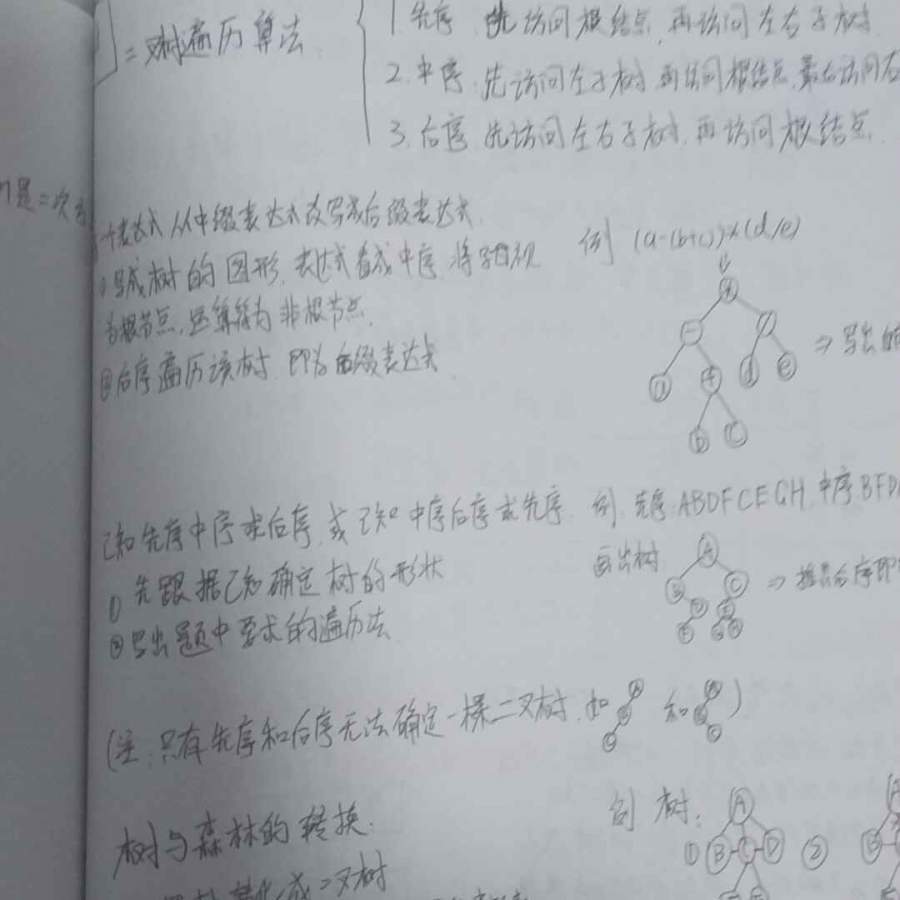 二叉树遍历算法
1.先序 先访问根结点,再访问左右子树
2.中序 先访问左子树 再访问根结点,最后访问右
3.后序 先访问左右子树,再访问根结点
是二次
表达式 从中缀表达式改写成后缀表达式
写成树的图形,表达式看成中序,将字母视 例 (a-(b+c))*(d/e)
为根节点,运算符为非根节点.
②后序遍历该树 即为后缀表达式
* - / a + d e b c
⇒写出
已知先序中序求后序,或已知中序后序求先序. 例.先序:ABDFCEGH 中序BFD
① 先跟据已知确定树的形状 画出树 A B C D ⇒推出后序即
②写出题中要求的遍历法
(注:只有先序和后序无法确定一棵二叉树,如 和 )
树与森林的转换: 例 树: ① A B C D ②
成二叉树